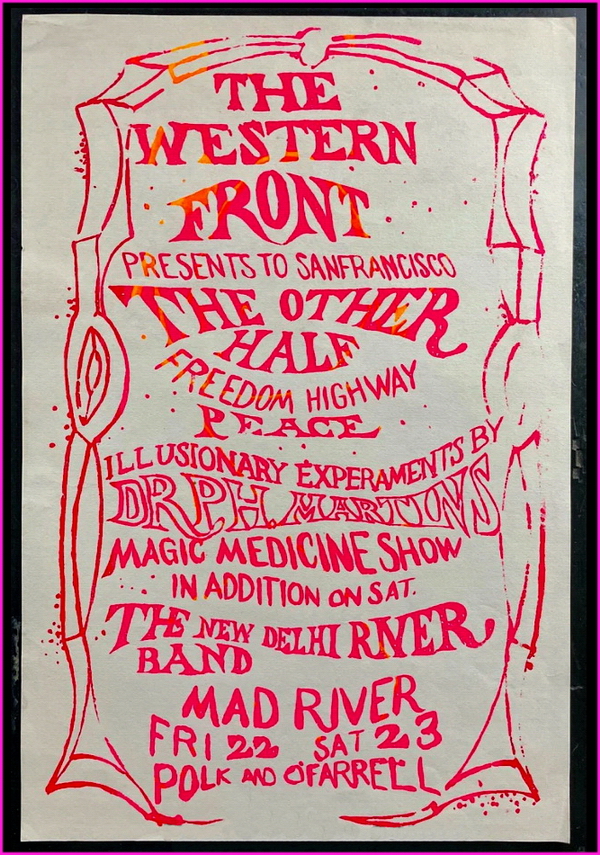 THE
WESTERN
FRONT
PRESENTS TO SANFRANCISCO
THE OTHER
HALF
FREEDOM HIGHWAY
PEACE
ILLUSIONARY EXPERAMENTS BY
DR P.H. MARTINS
MAGIC MEDICINE SHOW
IN ADDITION ON SAT.
THE NEW DELHI RIVER
BAND
MAD RIVER
FRI 22 SAT 23
POLK AND O'FARRELL